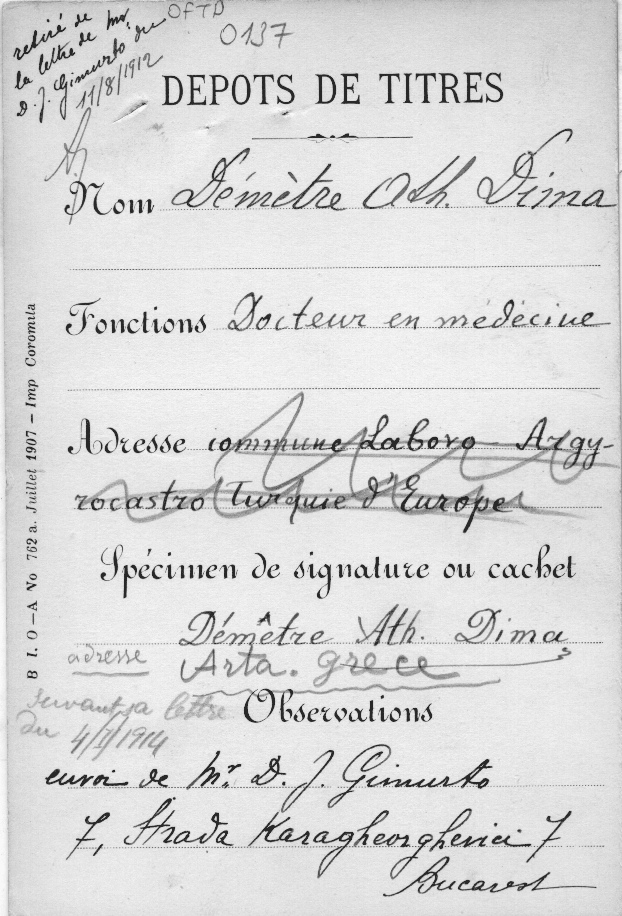 retiré de
la lettre de Mr.
D. J. Gimurto du
11/8/1912
OFTD
0137
DEPOTS DE TITRES
Nom Démètre Ath. Dima
Fonctions Docteur en médécine
Adresse commune Labovo Argy-
rocastro Turquie d'Europe
Spécimen de signature ou cachet
Démètre Ath. Dima
adresse Arta. grèce
suivant sa lettre
du 4/1/1914
Observations
envoi de Mr. D. J. Gimurto
7, Strada Karagheorghevici 7
Bucarest
B I. O – A No 762 a. Juillet 1907 – Imp Coromila